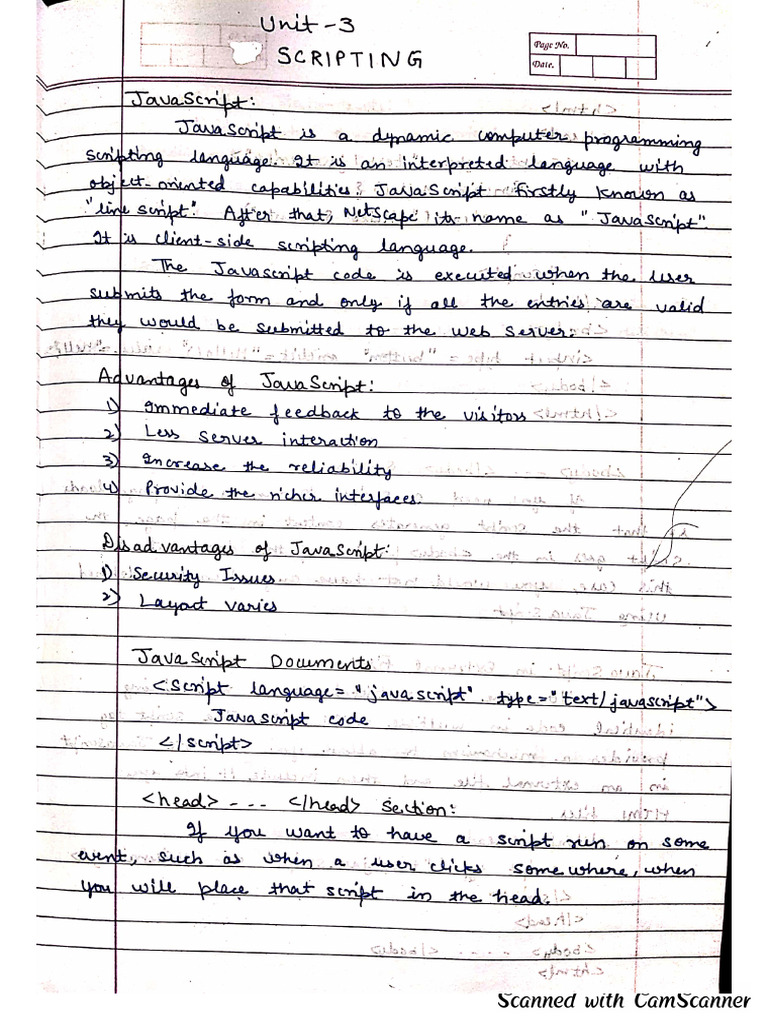 Unit-3
SCRIPTING
Page No.
Date.
JavaScript:
JavaScript is a dynamic computer programming
scripting language. It is an interpreted language with
object-oriented capabilities. JavaScript firstly known as
"line script". After that, Netscape its name as "JavaScript".
It is client-side scripting language.
The Javascript code is executed when the user
submits the form and only if all the entries are valid
they would be submitted to the web server.
Advantages of JavaScript:
1) Immediate feedback to the visitors
2) Less server interaction
3) Increase the reliability
4) Provide the richer interfaces.
Disadvantages of JavaScript:
1) Security Issues
2) Layout varies
JavaScript Documents
<script language="javascript" type="text/javascript">
Javascript code
</script>
<head> --- </head> section:
If you want to have a script run on some
event, such as when a user clicks somewhere, when
you will place that script in the head.
Scanned with CamScanner